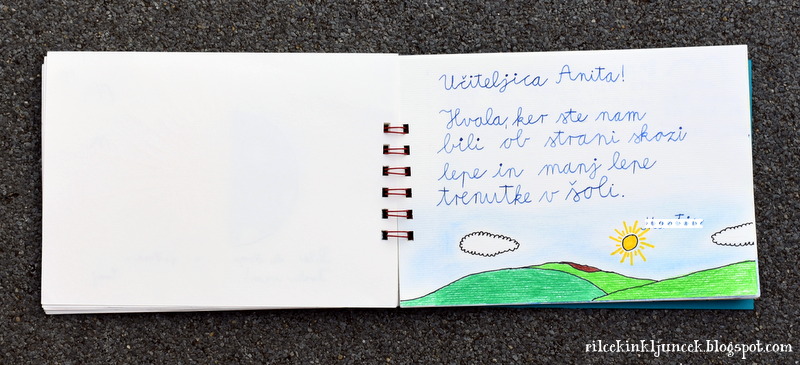 Učiteljica Anita!
Hvala, ker ste nam
bili ob strani skozi
lepe in manj lepe
trenutke v šoli.
rilcekinkljuncek.blogspot.com